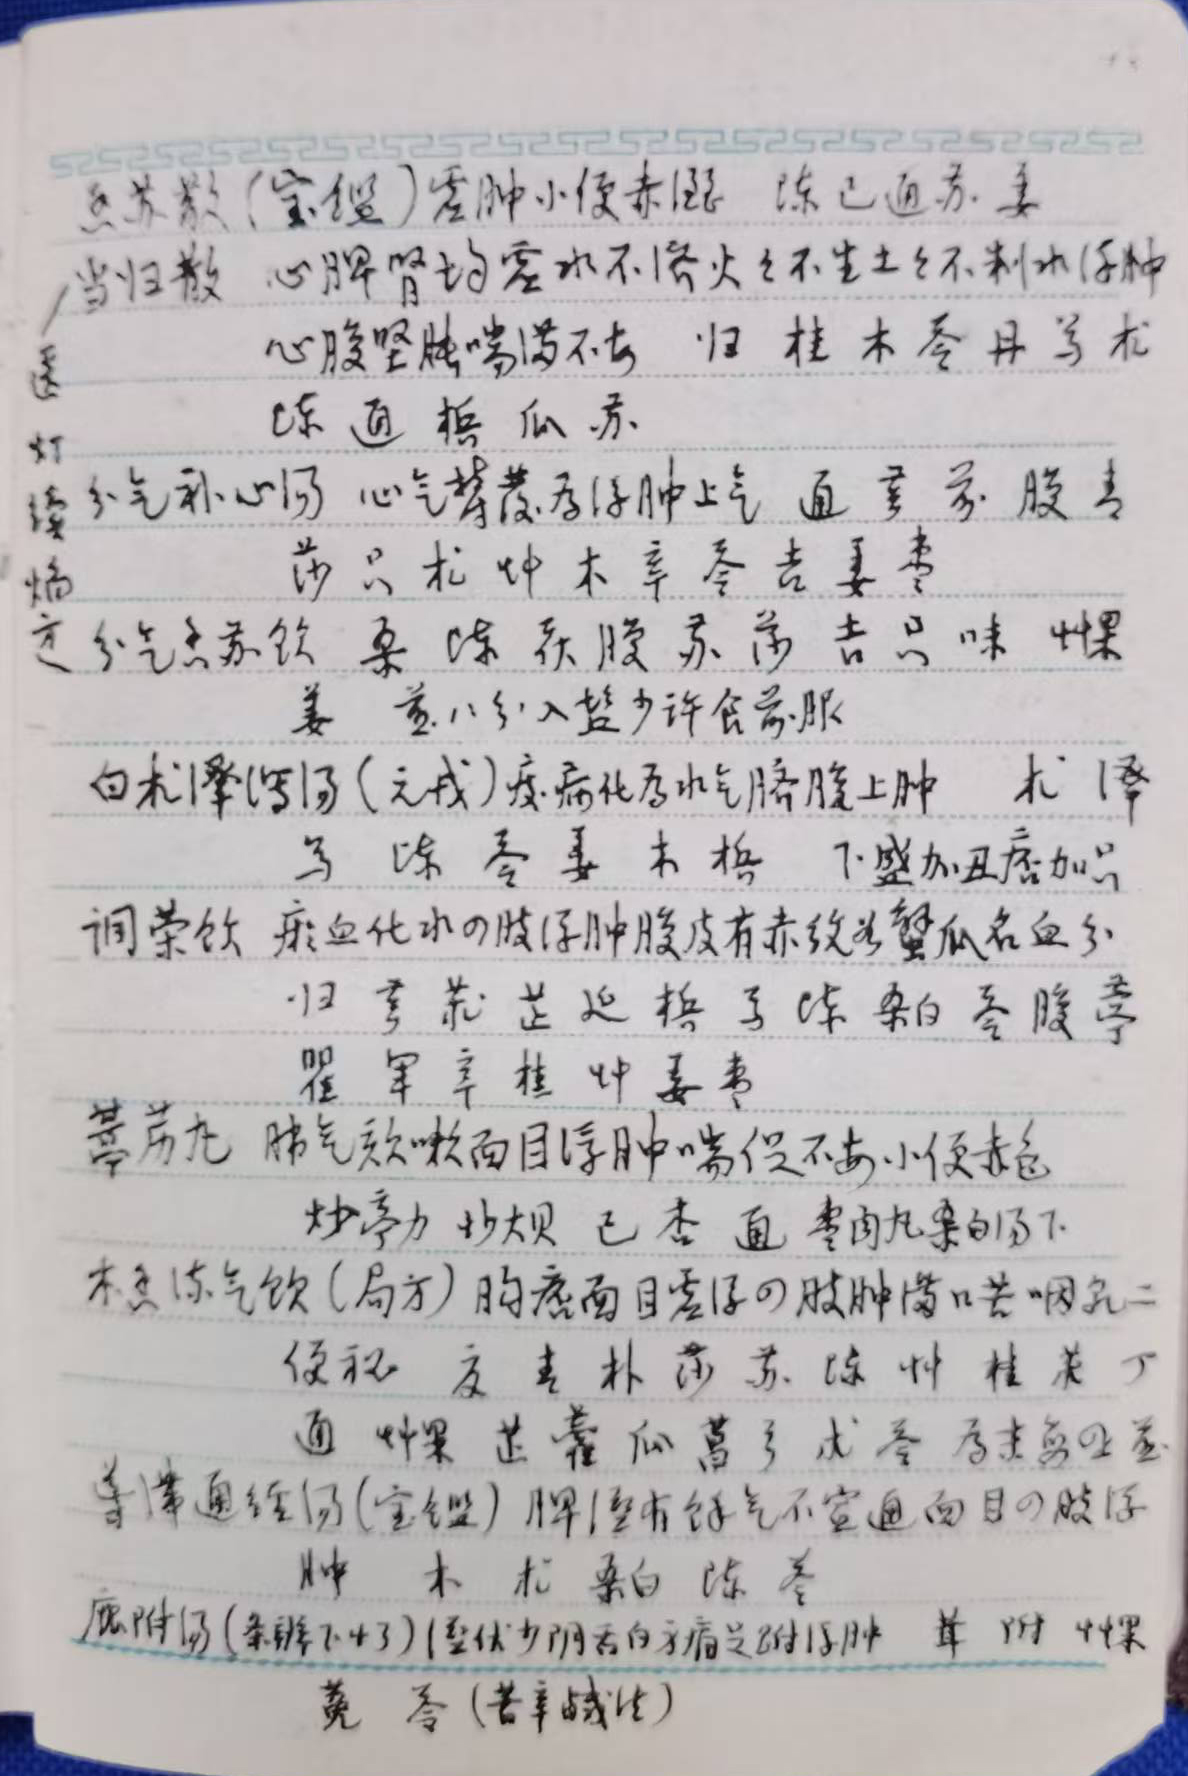 香苏散(宝鑑)虚肿小便赤涩 陈已通苏姜
当归散 心脾肾均虚水不济火々不生土々不制水浮肿
心腹坚胀喘满不安 归 桂 木 苓 丹 芍 术
陈 通 梹 瓜 苏
医灯续焰方
分气补心汤 心气郁发为浮肿上气 通 芎 前 腹 青
莎 只 术 艸 木 辛 苓 吉 姜 枣
分气香苏饮 桑 陈 茯 腹 苏 莎 吉 只 味 艸果
姜 煎八分入盐少许食前服
白术泽泻汤(元戎)痰病化为水气脐腹上肿 术 泽
芍 陈 苓 姜 木 梹 下盛加丑痞加只
调荣饮 瘀血化水の肢浮肿腹皮有赤纹如蟹爪名血分
归 芎 莪 芷 延 梹 芍 陈 桑白 苓 腹 葶
瞿 军 辛 桂 艸 姜 枣
葶苈丸 肺气咳嗽面目浮肿喘促不安小便赤色
炒葶力 炒贝 已 杏 通 枣肉丸桑白汤下
木香流气饮(局方)胸痞面目虚浮の肢肿满口苦咽干二
便秘 夏 青 朴 莎 苏 陈 艸 桂 莪 丁
通 艸果 芷 藿 瓜 菖 术 苓 为末每の止煎
导滞通经汤(宝鑑)脾湿有馀气不宣通面目の肢浮
肿 木 术 桑白 陈 苓
鹿附汤(条辨下43)湿伏少阴舌白身痛足跗浮肿 茸 附 艸果
菟 苓 (苦辛咸法)